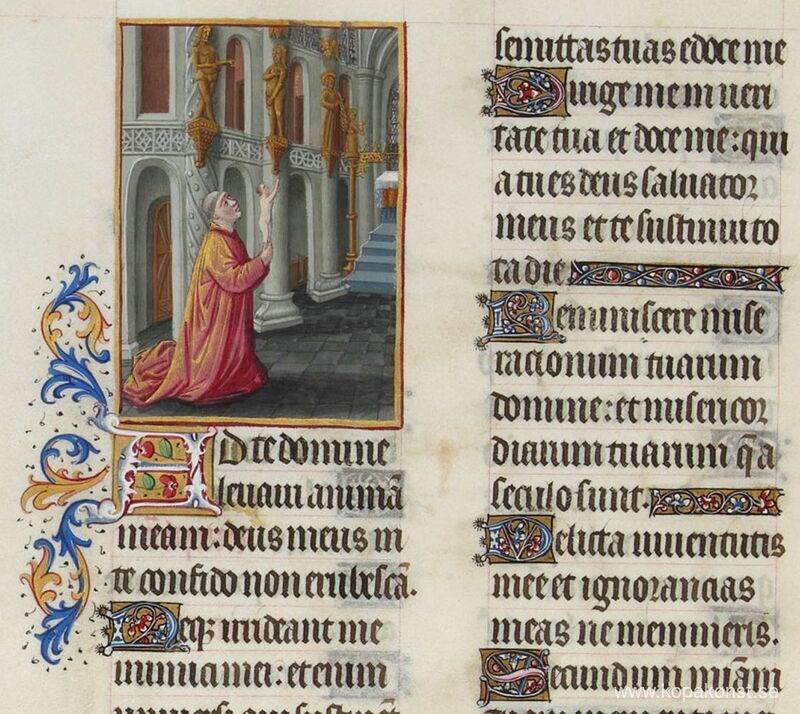 AD te domine
levavi animā
meam: deus meus in
te confido non erubescā.
Neqꝫ irrideant me
inimici mei: etenim
semittas tuas edoce me
Dirige me in veri
tate tua et doce me: qui
a tu es deus salvator
meus et te sustinui to
ta die
Reminiscere mise
racionum tuarum
domine: et misericor
diarum tuarum q̄ a
seculo sunt.
Delicta iuventutis
mee et ignorancias
meas ne memineris.
Secundum miām
www.kopakonst.se